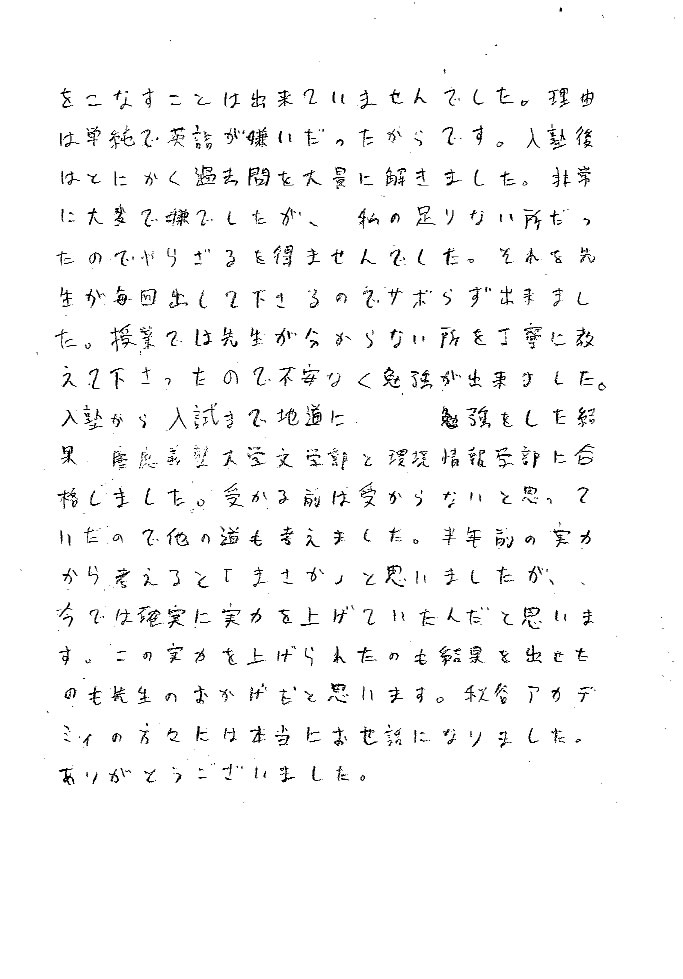 をこなすことは出来ていませんでした。理由
は単純で英語が嫌いだったからです。入塾後
はとにかく過去問を大量に解きました。非常
に大変で嫌でしたが、私の足りない所だっ
たのでやらざるを得ませんでした。それを先
生が毎回出して下さるのでサボらず出来まし
た。授業では先生が分からない所を丁寧に教
えて下さったので不安なく勉強が出来ました。
入塾から入試まで地道に 勉強をした結
果 慶應義塾大学文学部と環境情報学部に合
格しました。受かる前は受からないと思って
いたので他の道も考えました。半年前の実力
から考えると「まさか」と思いましたが、
今では確実に実力を上げていたんだと思いま
す。この実力を上げられたのも結果を出せた
のも先生のおかげだと思います。秋谷アカデ
ミィの方々には本当にお世話になりました。
ありがとうございました。